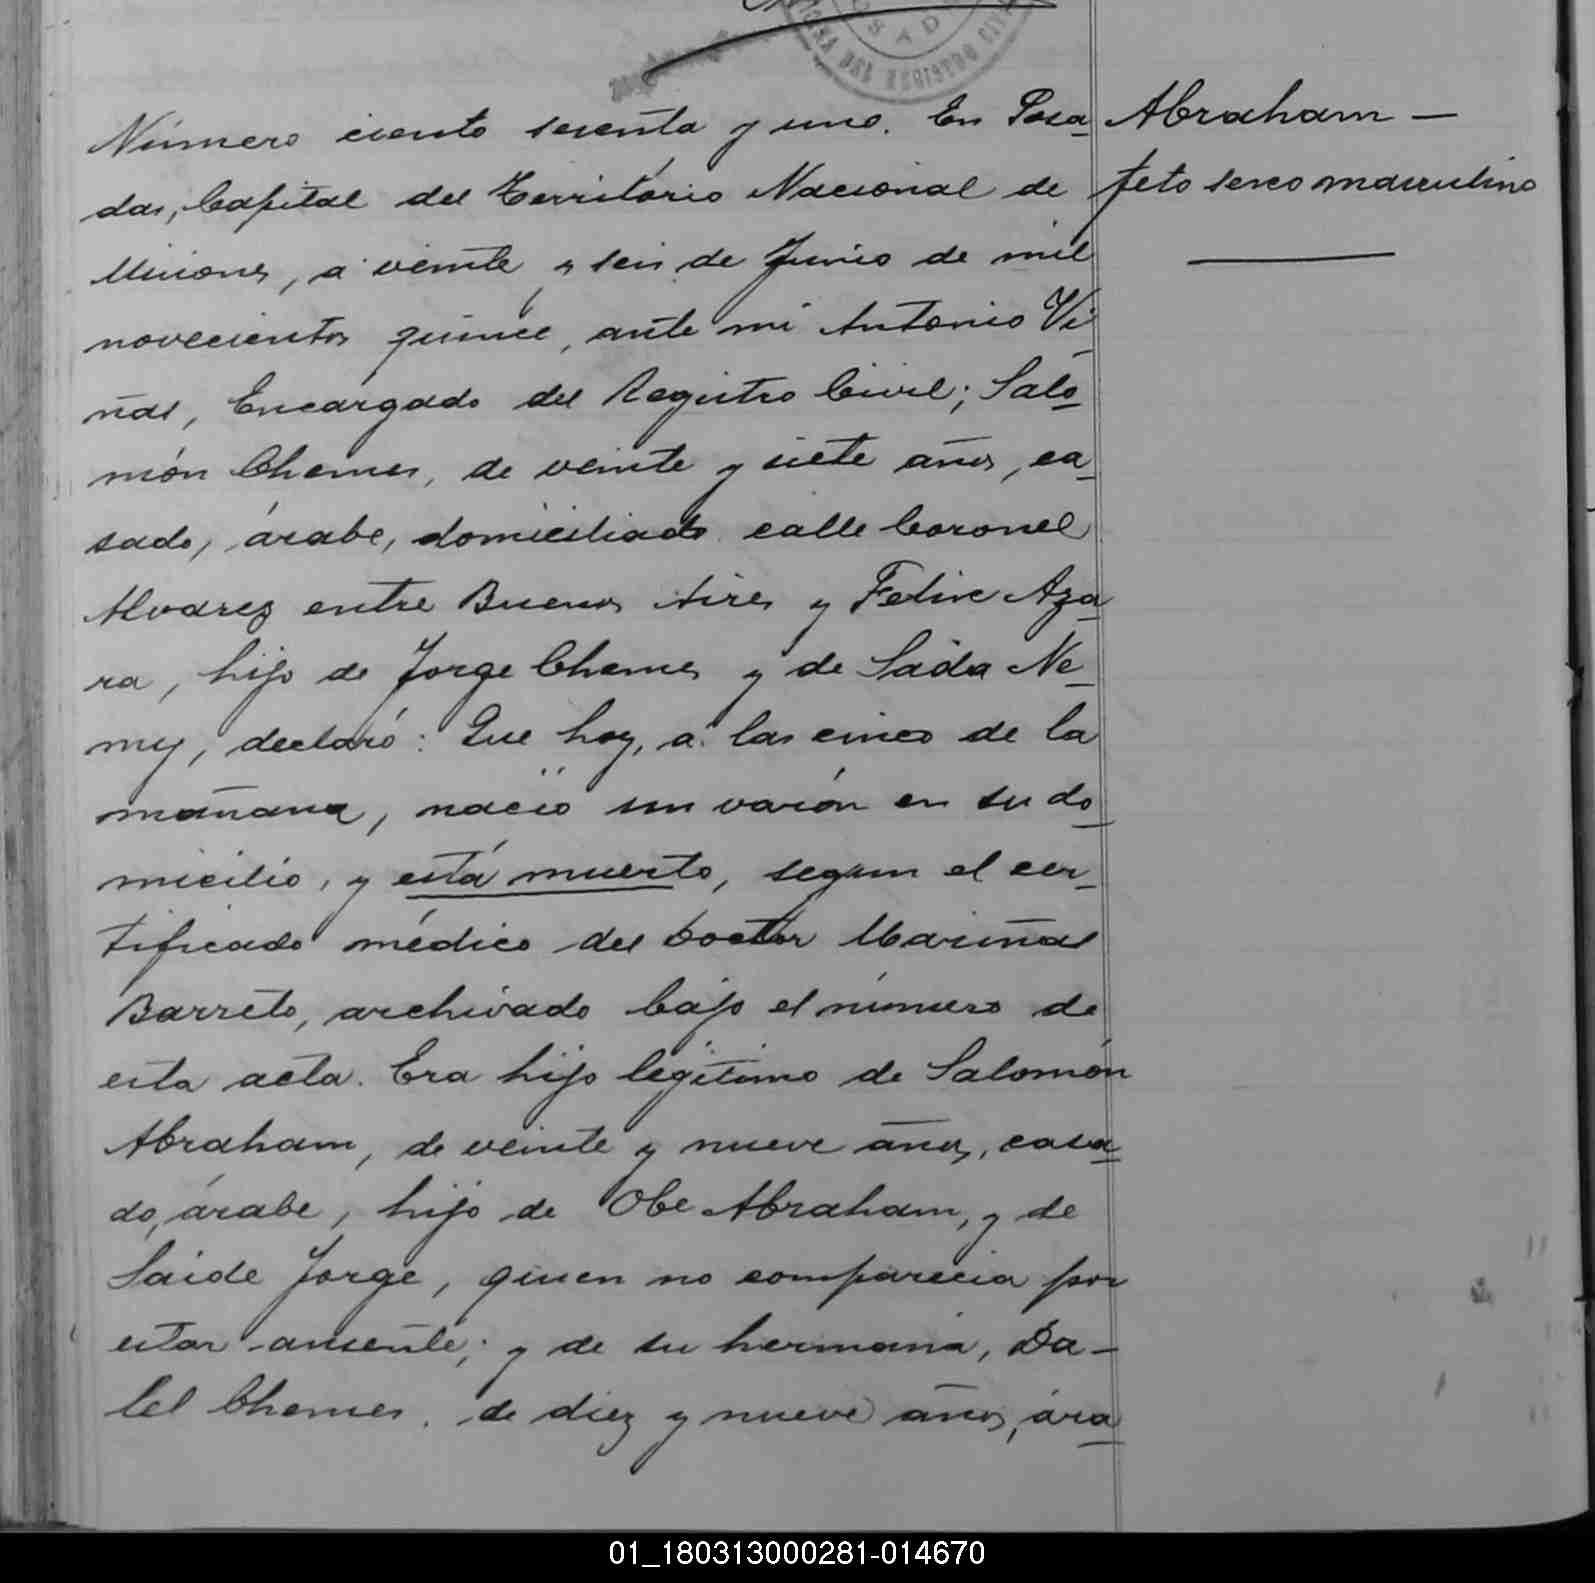 Número ciento sesenta y uno. En Posa-
das, Capital del Territorio Nacional de
Misiones, a veinte y seis de Junio de mil
novecientos quince, ante mi Antonio Vi
ñas, Encargado del Registro Civil; Salo-
món Chemes, de veinte y siete años, ca-
sado, árabe, domiciliado calle Coronel
Alvarez entre Buenos Aires y Felix Aza-
ra, hijo de Jorge Chemes y de Saida Ne-
my, declaró: Que hoy, a las cinco de la
mañana, nació un varón en su do-
micilio, y está muerto, segun el cer-
tificado médico del Doctor Mariñas
Barreto, archivado bajo el número de
esta acta. Era hijo legítimo de Salomón
Abraham, de veinte y nueve años, casa-
do, árabe, hijo de Obe Abraham, y de
Saide Jorge, quien no comparecia por
estar ausente; y de su hermana, Da-
lel Chemes, de diez y nueve años, ára-
Abraham —
feto sexo masculino
01_180313000281-014670